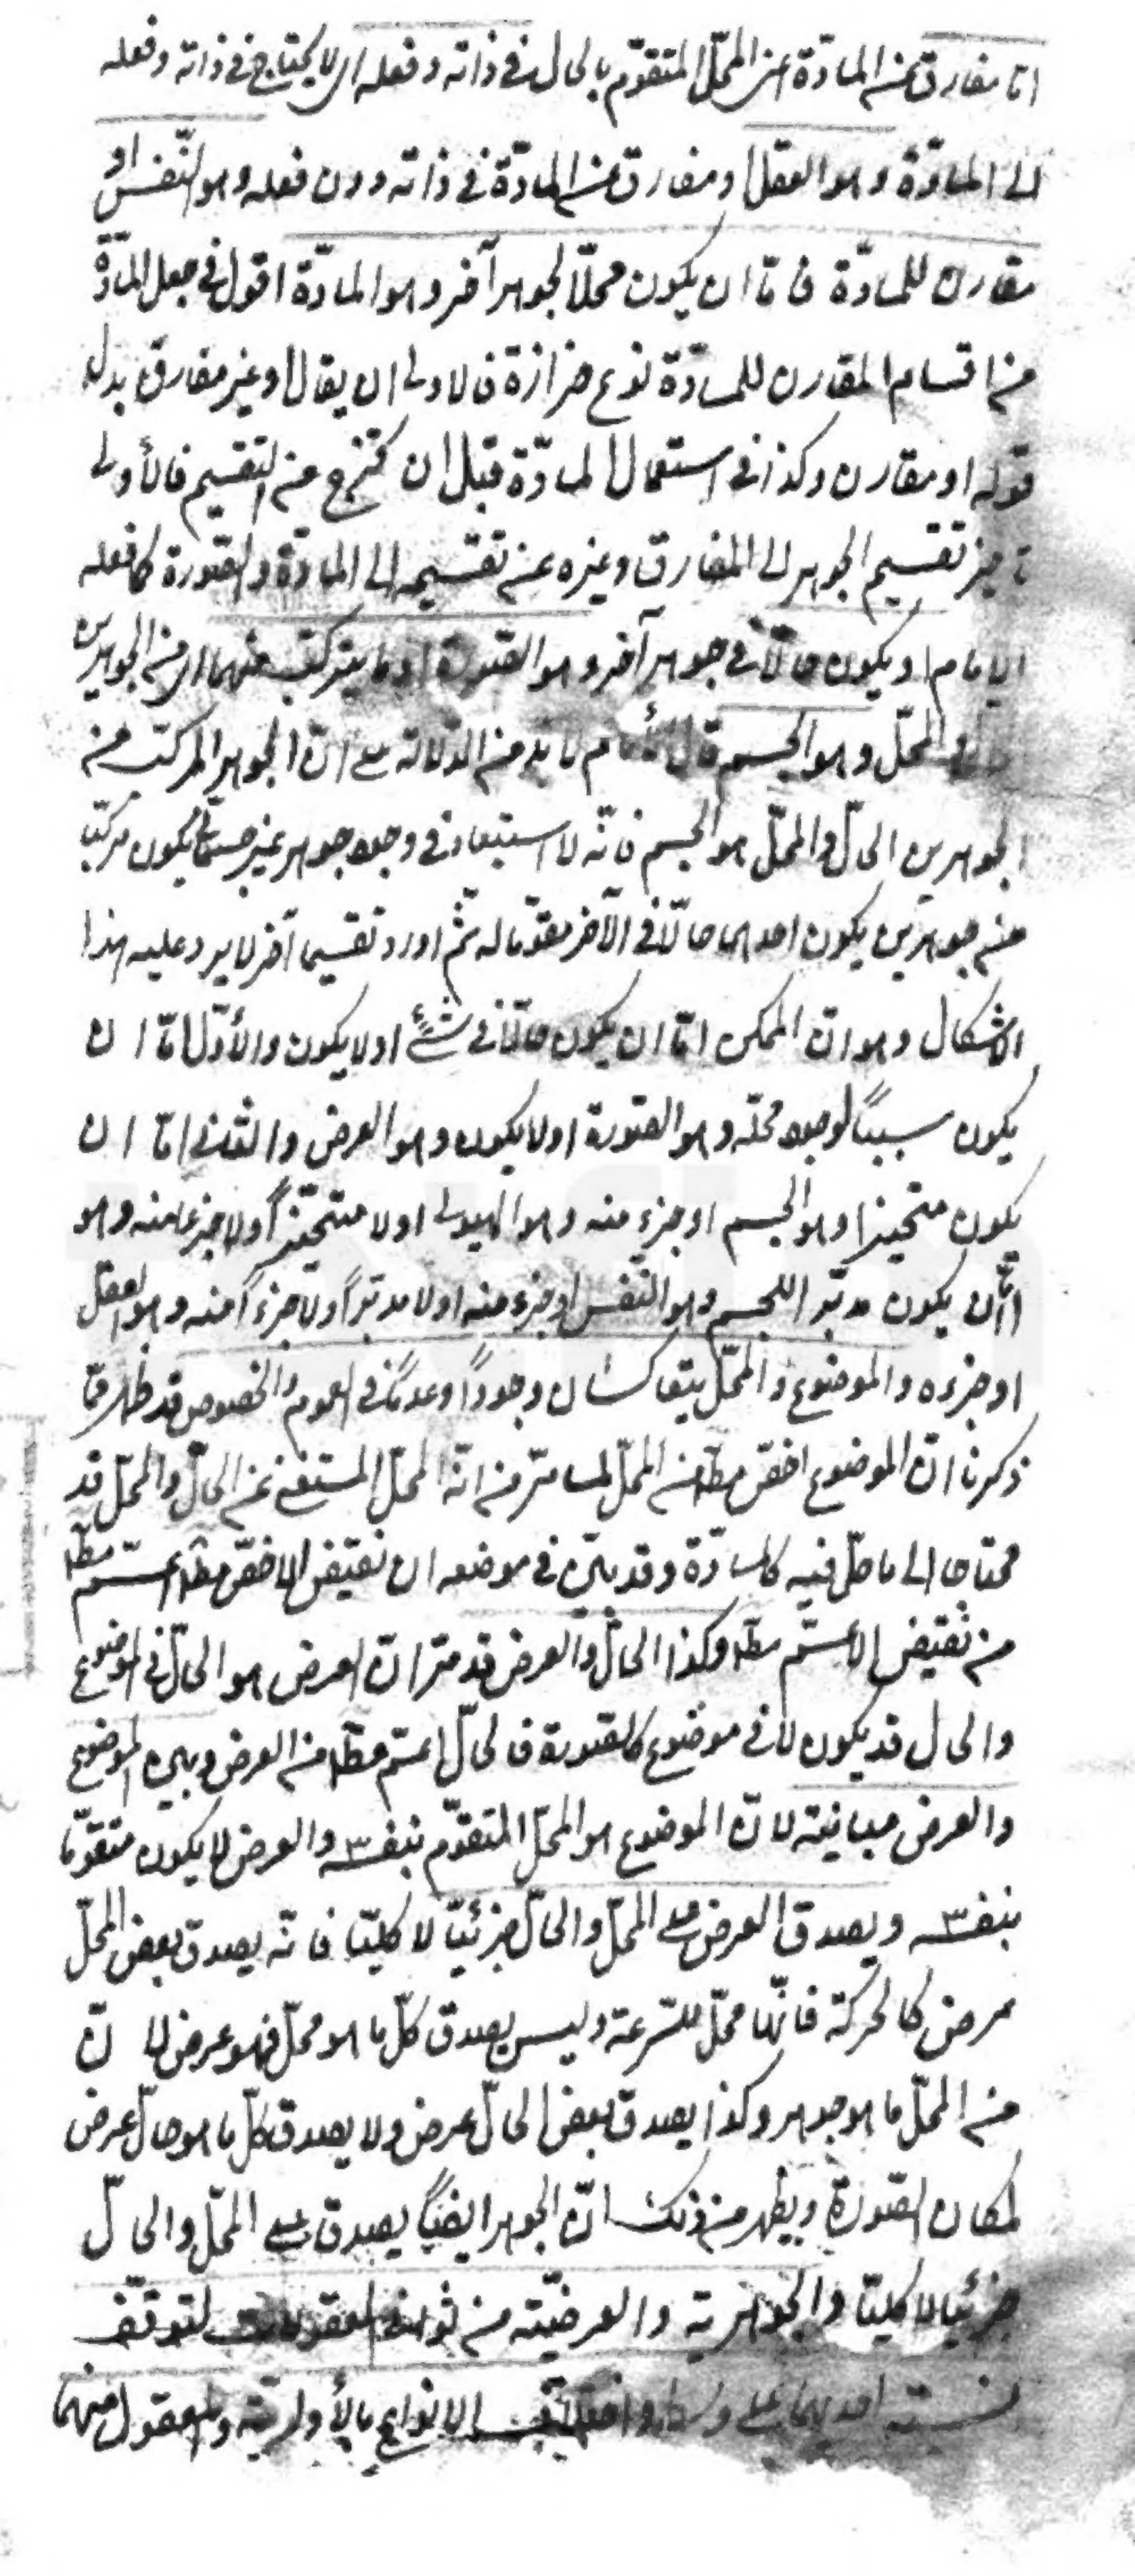 اما مفارق عن المادّة اعنى المحلّ المتقوّم بالحال فى ذاته وفعله اى لا يحتاج فى ذاته وفعله
الى المادّة وهو العقل او مفارق عن المادّة فى ذاته دون فعله وهو النّفس او
مقارن للمادّة فامّا ان يكون محلّا لجوهر آخر وهو المادّة اقول فى جعل المادّة
من اقسام المقارن للمادّة نوع حزازة فالاولى ان يقال او غير مفارق بدل
قوله او مقارن وكذا فى استعمال المادّة قبل ان تخرج عن التقسيم فالأولى
تقسيم الجوهر الى المفارق وغيره عن تقسيمه الى المادّة والصّورة كما فعله
الامام او يكون حالّا فى جوهر آخر وهو الصّورة او ما يتركّب منهما اى من الجوهرين
المحلّ وهو الجسم قال الأمام لا بد من الدّلالة على انّ الجوهر المركّب من
الجوهرين الحالّ والمحلّ هو الجسم فانّه لا استبعاد فى وجود جوهر غير جسمانى يكون مركّبا
من جوهرين يكون احدهما حالّا فى الآخر مقوّما له ثمّ اورد تقسيما آخر لا يرد عليه هذا
الاشكال وهو انّ الممكن امّا ان يكون حالّا فى شىءٍ او لا يكون والأوّل امّا ان
يكون سببًا لوجود محلّه وهو الصّورة او لا يكون وهو العرض والثانى امّا ان
يكون متحيزا وهو الجسم او جزء منه وهو الهيولى او لا متحيّزًا ولا جزءا منه وهو
امّا ان يكون مدبّرا للجسم وهو النّفس او جزء منه او لا مدبّرًا ولا جزءًا منه وهو العقل
او جزءه والموضوع والمحلّ يتعاكسان وجودًا وعدمًا فى العموم والخصوص قد ظهر ممّا
ذكرنا انّ الموضوع اخصّ مطلقا من المحلّ لما مرّ من انّه المحلّ المستغنى عن الحالّ والمحلّ قد
محتاجا الى ما حلّ فيه كالمادّة وقد بيّن فى موضعه ان نقيض الاخصّ مطلقا اعمّ مطلقا
من نقيض الاعمّ مطلقا وكذا الحالّ والعرض قد مرّ انّ العرض هو الحالّ فى الموضوع
والحال قد يكون لا فى موضوع كالصّورة فالحالّ اعمّ مطلقا من العرض وبين الموضوع
والعرض مباينة لانّ الموضوع هو المحلّ المتقوّم بنفسه والعرض لا يكون متقوّما
بنفسه ويصدق العرض على المحلّ والحالّ جزئيّا لا كليّا فانّه يصدق بعض المحلّ
عرض كالحركة فانّها محلّ للسّرعة وليس يصدق كلّ ما هو محلّ فهو عرض لانّ
من المحلّ ما هو جوهر وكذا يصدق بعض الحالّ عرض ولا يصدق كلّ ما هو حالّ عرض
لمكان الصّورة ويظهر من ذلك انّ الجوهر ايضًا يصدق على المحلّ والحالّ
جزئيا لا كليّا والجوهرية والعرضيّة من ثوانى المعقولات لتوقّف
نسبته احديهما على وسط واختلاف الانواع بالأولوية والمعقول منهما